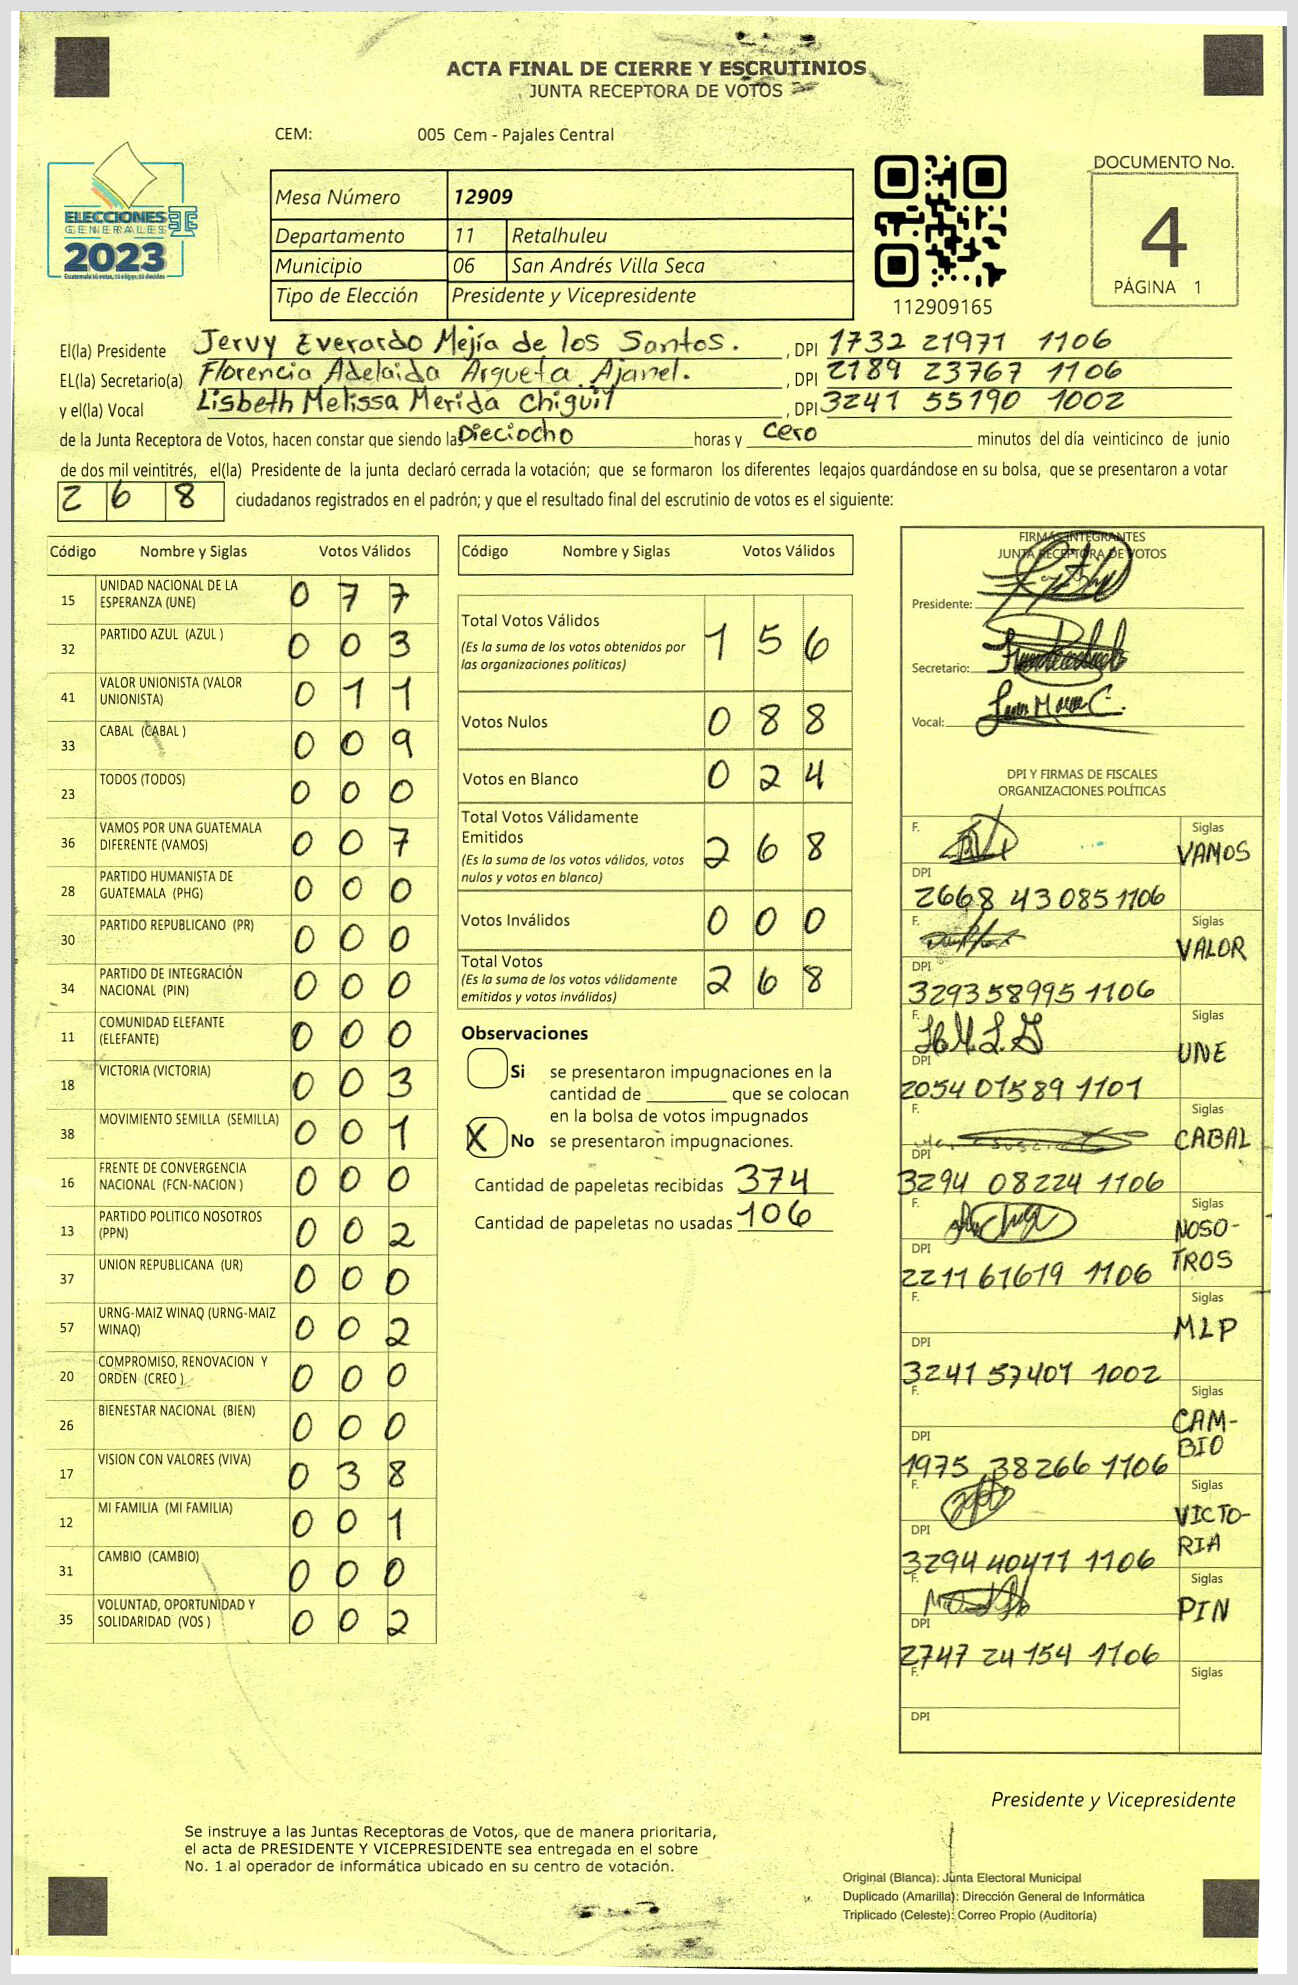 ACTA FINAL DE CIERRE Y ESCRUTINIOS
JUNTA RECEPTORA DE VOTOS
CEM: 005 Cem - Pajales Central
ELECCIONES
GENERALES
2023
Mesa Número 12909
Departamento 11 Retalhuleu
Municipio 06 San Andrés Villa Seca
Tipo de Elección Presidente y Vicepresidente
112909165
DOCUMENTO No.
4
PÁGINA 1
El(la) Presidente Jervy Everardo Mejía de los Santos. , DPI 1732 21971 1106
EL(la) Secretario(a) Florencia Adelaida Argueta Ajanel. , DPI 2189 23767 1106
y el(la) Vocal Lisbeth Melissa Merida Chiguil , DPI 3241 55190 1002
de la Junta Receptora de Votos, hacen constar que siendo las Dieciocho horas y cero minutos del día veinticinco de junio
de dos mil veintitrés, el(la) Presidente de la junta declaró cerrada la votación; que se formaron los diferentes legajos guardándose en su bolsa, que se presentaron a votar
2 6 8 ciudadanos registrados en el padrón; y que el resultado final del escrutinio de votos es el siguiente:
Código Nombre y Siglas Votos Válidos
15 UNIDAD NACIONAL DE LA ESPERANZA (UNE) 0 7 7
32 PARTIDO AZUL (AZUL ) 0 0 3
41 VALOR UNIONISTA (VALOR UNIONISTA) 0 1 1
33 CABAL (CABAL ) 0 0 9
23 TODOS (TODOS) 0 0 0
36 VAMOS POR UNA GUATEMALA DIFERENTE (VAMOS) 0 0 7
28 PARTIDO HUMANISTA DE GUATEMALA (PHG) 0 0 0
30 PARTIDO REPUBLICANO (PR) 0 0 0
34 PARTIDO DE INTEGRACIÓN NACIONAL (PIN) 0 0 0
11 COMUNIDAD ELEFANTE (ELEFANTE) 0 0 0
18 VICTORIA (VICTORIA) 0 0 3
38 MOVIMIENTO SEMILLA (SEMILLA) 0 0 1
16 FRENTE DE CONVERGENCIA NACIONAL (FCN-NACION ) 0 0 0
13 PARTIDO POLITICO NOSOTROS (PPN) 0 0 2
37 UNION REPUBLICANA (UR) 0 0 0
57 URNG-MAIZ WINAQ (URNG-MAIZ WINAQ) 0 0 2
20 COMPROMISO, RENOVACION Y ORDEN (CREO ) 0 0 0
26 BIENESTAR NACIONAL (BIEN) 0 0 0
17 VISION CON VALORES (VIVA) 0 3 8
12 MI FAMILIA (MI FAMILIA) 0 0 1
31 CAMBIO (CAMBIO) 0 0 0
35 VOLUNTAD, OPORTUNIDAD Y SOLIDARIDAD (VOS ) 0 0 2
Código Nombre y Siglas Votos Válidos
Total Votos Válidos 1 5 6
(Es la suma de los votos obtenidos por
las organizaciones políticas)
Votos Nulos 0 8 8
Votos en Blanco 0 2 4
Total Votos Válidamente
Emitidos 2 6 8
(Es la suma de los votos válidos, votos
nulos y votos en blanco)
Votos Inválidos 0 0 0
Total Votos 2 6 8
(Es la suma de los votos válidamente
emitidos y votos inválidos)
Observaciones
Si se presentaron impugnaciones en la
cantidad de ________ que se colocan
en la bolsa de votos impugnados
X No se presentaron impugnaciones.
Cantidad de papeletas recibidas 374
Cantidad de papeletas no usadas 106
FIRMAS INTEGRANTES
JUNTA RECEPTORA DE VOTOS
Presidente:
Secretario:
Vocal:
DPI Y FIRMAS DE FISCALES
ORGANIZACIONES POLÍTICAS
F. Siglas VAMOS
DPI 2668 43 085 1106
F. Siglas VALOR
DPI 3293 58995 1106
F. Siglas UNE
DPI 2054 01589 1101
F. Siglas CABAL
DPI 3294 08224 1106
F. Siglas NOSO-
TROS
DPI 2211 61619 1106
F. Siglas MLP
DPI 3241 57401 1002
F. Siglas CAM-
BIO
DPI 1975 38266 1106
F. Siglas VICTO-
RIA
DPI 3294 40411 1106
F. Siglas PIN
DPI 2747 24 154 1106
F. Siglas
DPI
Presidente y Vicepresidente
Se instruye a las Juntas Receptoras de Votos, que de manera prioritaria,
el acta de PRESIDENTE Y VICEPRESIDENTE sea entregada en el sobre
No. 1 al operador de informática ubicado en su centro de votación.
Original (Blanca): Junta Electoral Municipal
Duplicado (Amarilla): Dirección General de Informática
Triplicado (Celeste): Correo Propio (Auditoría)